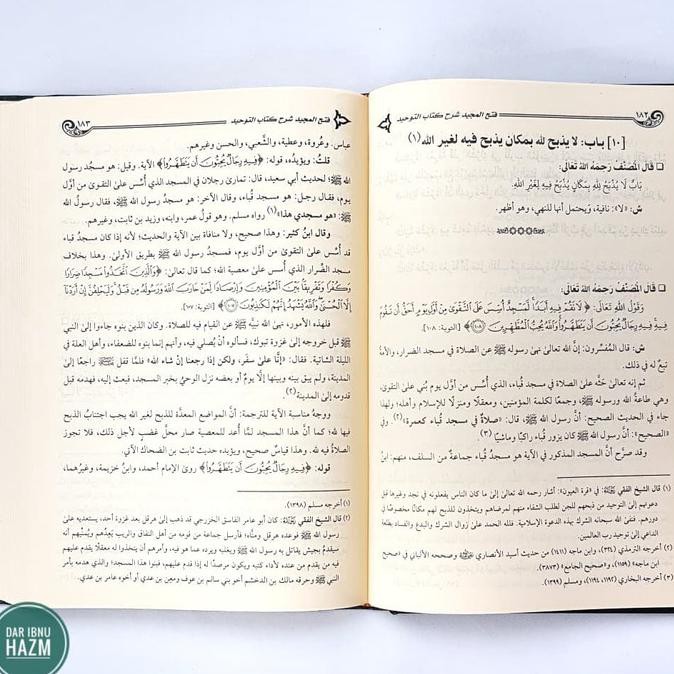 ١٨٢
فتح المجيد شرح كتاب التوحيد
[١٠] باب: لا يذبح لله بمكان يذبح فيه لغير الله (١)
❑ قَالَ المُصَنِّفُ رَحِمَهُ اللهُ تَعَالَى:
بَابٌ لَا يُذْبَحُ لِلَّهِ بِمَكَانٍ يُذْبَحُ فِيهِ لِغَيْرِ اللهِ.
ش: «لا»: نافية، ويُحتمل أنها للنهي، وهو أظهر.
❑ قَالَ المُصَنِّفُ رَحِمَهُ اللهُ تَعَالَى:
وَقَوْلِ اللهِ تَعَالَى: ﴿لَا نَقُمْ فِيهِ أَبَدًا لَّمَسْجِدٌ أُسِّسَ عَلَى التَّقْوَى مِنْ أَوَّلِ يَوْمٍ أَحَقُّ أَن تَقُومَ
فِيهِ فِيهِ رِجَالٌ يُحِبُّونَ أَن يَتَطَهَّرُوا وَاللهُ يُحِبُّ الْمُطَّهِّرِينَ﴾ [التوبة: ١٠٨].
ش: قال المُفسِّرون: إنَّ الله تعالى نهى رسوله ﷺ عن الصلاة في مسجد الضرار، والأمَّة
تبعٌ له في ذلك.
ثم إنه تعالى حثَّه على الصلاة في مسجد قُباء، الذي أُسِّس من أوَّل يوم بُني على التقوى،
وهي طاعةُ الله ورسوله ﷺ، وجمعًا لكلمة المؤمنين، ومعقلًا ومنزلًا للإسلام وأهله؛ ولهذا
جاء في الحديث الصحيح: أنَّ رسول الله ﷺ قال: «صلاةٌ في مسجد قُباء كعمرة»(٢) وفي
«الصحيح»: أنَّ رسول الله ﷺ كان يزور قُباء راكبًا وماشيًا (٣)
وقد صرَّح أنَّ المسجد المذكور في الآية هو مسجدُ قُباء جماعةٌ من السلف، منهم: ابن
(١) قال الشيخ الفقي: في «قرة العيون»: أشار رحمه الله تعالى إلى ما كان الناس يفعلونه في نجد وغيرها قبل
دعوتهم إلى التوحيد من ذبحهم للجن لطلب الشفاء منهم لمرضاهم ويتخذون للذبح لهم مكانًا مخصوصًا في
دورهم. فنفى الله سبحانه الشرك بهذه الدعوة الإسلامية. فلله الحمد على زوال الشرك والبدع والفساد بطلوع
الداعي إلى توحيد رب العالمين.
(٢) أخرجه الترمذي (٣٢٤)، وابن ماجه (١٤١١) من حديث أسيد الأنصاري، وصححه الألباني في «صحيح
ابن ماجه» (١١٥٩)، و«صحيح الجامع» (٣٨٧٢)
(٣) أخرجه البخاري (١١٩٢، ١١٩٤)، ومسلم (١٣٩٩).
فتح المجيد شرح كتاب التوحيد
١٨٣
عباس. وعُروة، وعطية، والشَّعبي، والحسن وغيرهم.
قلتُ: ويؤيدُه، قوله: ﴿فِيهِ رِجَالٌ يُحِبُّونَ أَن يَتَطَهَّرُوا﴾ الآية. وقيل: هو مسجدُ رسول
الله ﷺ؛ لحديث أبي سعيد، قال: تمارى رجلان في المسجد الذي أُسِّس على التقوى من أوَّل
يوم، فقال رجل: هو مسجد قُباء، وقال الآخر: هو مسجدُ رسول الله ﷺ، فقال رسولُ الله
ﷺ: «هو مسجدي هذا»(١) رواه مسلم. وهو قولُ عمر، وابنه، وزيد بن ثابت، وغيرهم.
وقال ابنُ كثير: وهذا صحيح، ولا منافاة بين الآية والحديث؛ لأنه إذا كان مسجدُ قباء
قد أُسِّس على التقوى من أوَّل يوم، فمسجدُ رسول الله ﷺ بطريق الأولى. وهذا بخلاف
مسجد الضِّرار الذي أُسِّس على معصية الله؛ كما قال تعالى: ﴿وَالَّذِينَ اتَّخَذُوا مَسْجِدًا ضِرَارًا
وَكُفْرًا وَتَفْرِيقًا بَيْنَ الْمُؤْمِنِينَ وَإِرْصَادًا لِّمَنْ حَارَبَ اللهَ وَرَسُولَهُ مِن قَبْلُ وَلَيَحْلِفُنَّ إِنْ أَرَدْنَا
إِلَّا الْحُسْنَى وَاللهُ يَشْهَدُ إِنَّهُمْ لَكَاذِبُونَ ﴾ [التوبة: ١٠٧].
فلهذه الأمور، نهى اللهُ نبيَّه ﷺ عن القيام فيه للصلاة. وكان الذين بنوه جاءوا إلى النبي
ﷺ قبل خروجه إلى غزوة تبوك، فسألوه أن يُصلي فيه، وأنهم إنما بنوه للضعفاء، وأهل العلة في
الليلة الشاتية. فقال: «إنَّا على سفَر، ولكن إذا رجعنا إنْ شاء الله» فلمَّا قفل ﷺ راجعًا إلى
المدينة، ولم يبق بينه وبينها إلَّا يومٌ أو بعضه نزل الوحيُ بخبر المسجد، فبعث إليه، فهدمه قبل
قدومه إلى المدينة(٢)
ووجهُ مناسبة الآية للترجمة: أنَّ المواضع المعدَّة للذبح لغير الله يجب اجتنابُ الذبح
فيها لله؛ كما أنَّ هذا المسجد لمَّا أُعد للمعصية صار محلَّ غضبٍ لأجل ذلك، فلا تجوز
الصلاةُ فيه لله. وهذا قياسٌ صحيح، يؤيده حديث ثابت بن الضحاك الآتي.
قوله: ﴿فِيهِ رِجَالٌ يُحِبُّونَ أَن يَتَطَهَّرُوا﴾ روى الإمام أحمد، وابنُ خزيمة، وغيرُهما،
(١) أخرجه مسلم (١٣٩٨)
(٢) قال الشيخ الفقي: كان أبو عامر الفاسق الخزرجي قد ذهب إلى هرقل بعد غزوة أحد، يستعديه على
رسول الله ﷺ فوعده هرقل ومنَّاه؛ فأرسل إلى جماعة من قومه من أهل النفاق والريب يعدهم ويُمنِّيهم أنه
سيقدم بجيش يقاتل به رسول الله ﷺ ويغلبه ويرده عما هو فيه، وأمرهم أن يتخذوا له معقلًا يقدم عليهم
فيه من يقدم من عنده لأداء كتبه ويكون مرصدًا له إذا قدم عليهم، فبنوا هذا المسجد؛ والذي هدمه بأمر
النبي ﷺ وحرقه مالك بن الدخشم أخو بني سالم بن عوف ومعن بن عدي أو أخوه عامر بن عدي.
DAR IBNU
HAZM